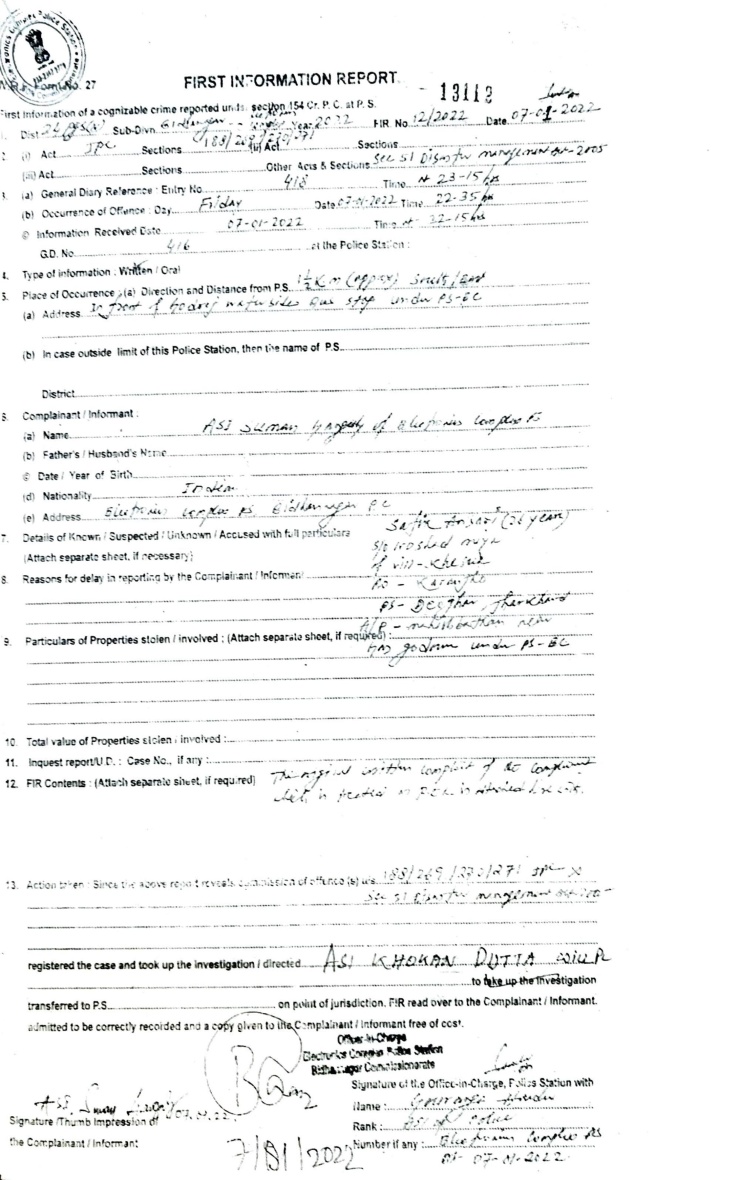 W.B.P. Form No. 27
FIRST INFORMATION REPORT
13112
First Information of a cognizable crime reported under section 154 Cr. P. C. at P. S.
1. Dist. Sub-Divn. Year 2022 FIR No. 12/2022 Date 07-01-2022
2. (i) Act IPC Sections 188/269/270/271 (ii) Act Sections
(iii) Act Sections Other Acts & Sections Sec 51 Disaster management Act-2005
3. (a) General Diary Reference : Entry No. 418 Time At 23-15 hrs
(b) Occurrence of Offence : Day Friday Date 07-01-2022 Time 22-35 hrs
© Information Received Date 07-01-2022 Time at 22-15 hrs
G.D. No. 416 at the Police Station :
4. Type of information : Written / Oral
5. Place of Occurrence : (a) Direction and Distance from P.S. 1½ Km (approx) South/East
(a) Address In front of Godrej waterside bus stop under PS-EC
(b) In case outside limit of this Police Station, then the name of P.S.
District
6. Complainant / Informant :
(a) Name ASI Suman of Electronics Complex PS
(b) Father's / Husband's Name
© Date / Year of Birth
(d) Nationality Indian
(e) Address Electronics Complex PS, Bidhannagar P.C
7. Details of Known / Suspected / Unknown / Accused with full particulars
(Attach separate sheet, if necessary)
Safik Ansari (26 years)
S/o
of vill-
8. Reasons for delay in reporting by the Complainant / Informant
PO -
PS- Deoghar, Jharkhand
A/P - near
9. Particulars of Properties stolen / involved : (Attach separate sheet, if required) :
godown under PS-EC
10. Total value of Properties stolen / involved :
11. Inquest report/U.D. : Case No., if any :
12. FIR Contents : (Attach separate sheet, if required) The original written complaint of the complainant
which is treated as FIR is attached herewith.
13. Action taken : Since the above report reveals commission of offence (s) u/s. 188/269/270/271 IPC
Sec 51 Disaster management Act-2005
registered the case and took up the investigation / directed ASI KHOKAN DUTTA will
to take up the investigation
transferred to P.S. on point of jurisdiction. FIR read over to the Complainant / Informant.
admitted to be correctly recorded and a copy given to the Complainant / Informant free of cost.
Officer-in-Charge
Electronics Complex Police Station
Bidhannagar Commissionerate
Signature of the Office-in-Charge, Police Station with
Name :
Rank : of Police
Number if any : Electronics Complex PS
Dt- 07-01-2022
07.01.22
Signature /Thumb Impression of
the Complainant / Informant
7/01/2022